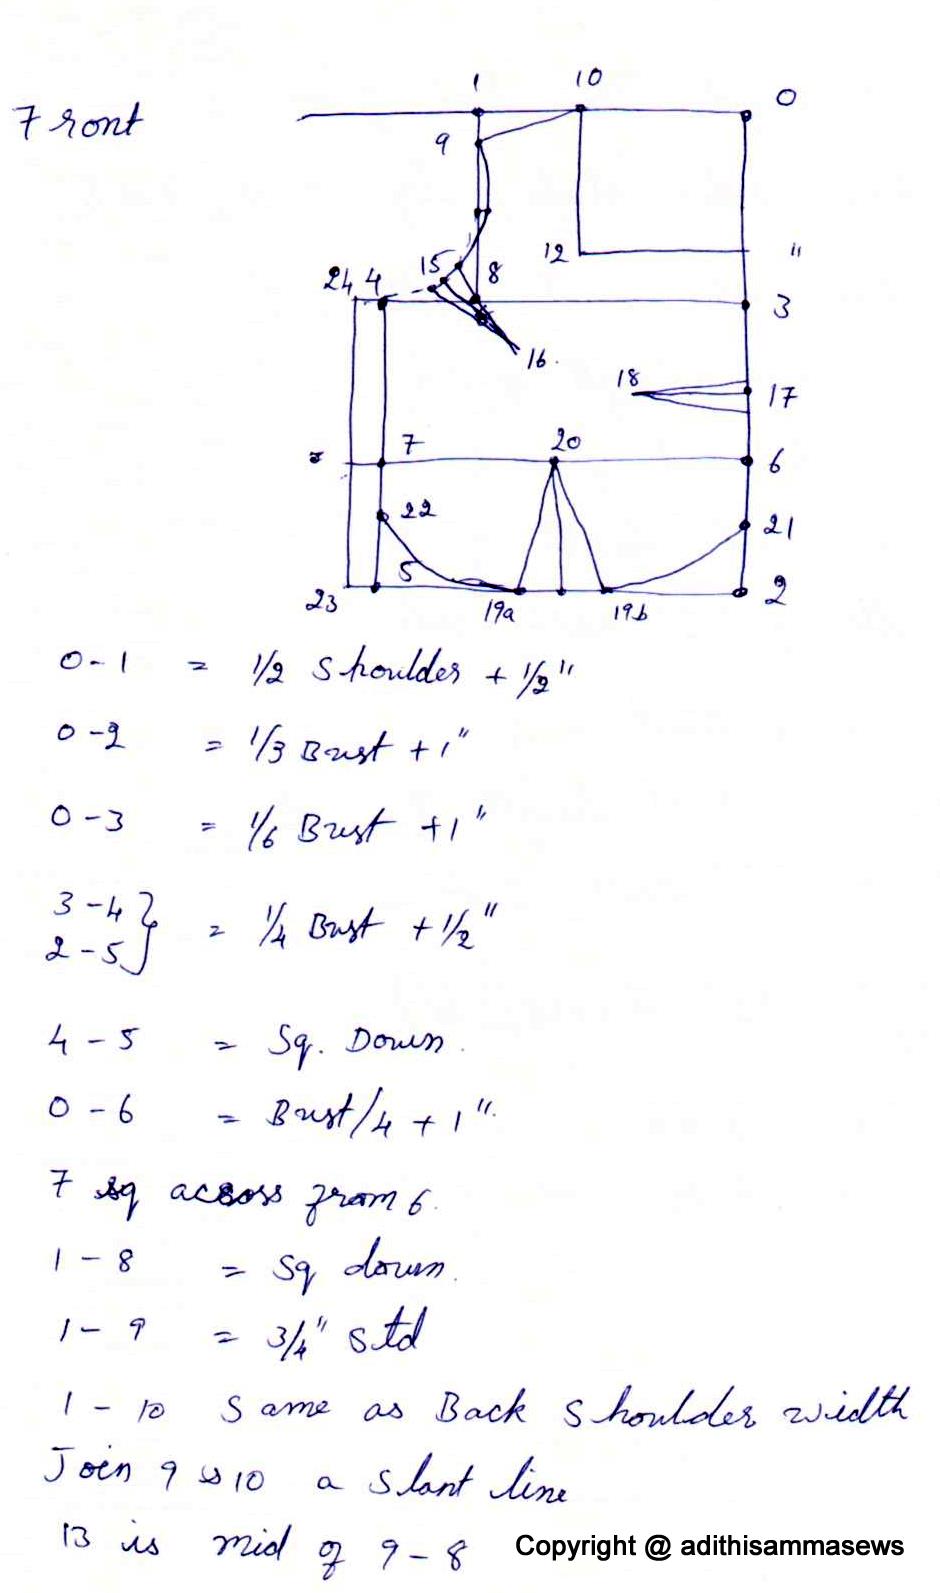 Front
1 10 0
9
12 "
15 8
24 4 3
16.
18 17
7 20 6
22 21
5
23 19a 19b 2
0-1 = 1/2 Shoulder + 1/2"
0-2 = 1/3 Bust + 1"
0-3 = 1/6 Bust +1"
3-4 }
2-5 } = 1/4 Bust + 1/2"
4-5 = Sq. Down.
0-6 = Bust/4 + 1".
7 sq across from 6.
1-8 = Sq down.
1-9 = 3/4" std
1-10 Same as Back Shoulder width
Join 9 & 10 a slant line
13 is mid of 9-8
Copyright @ adithisammasews